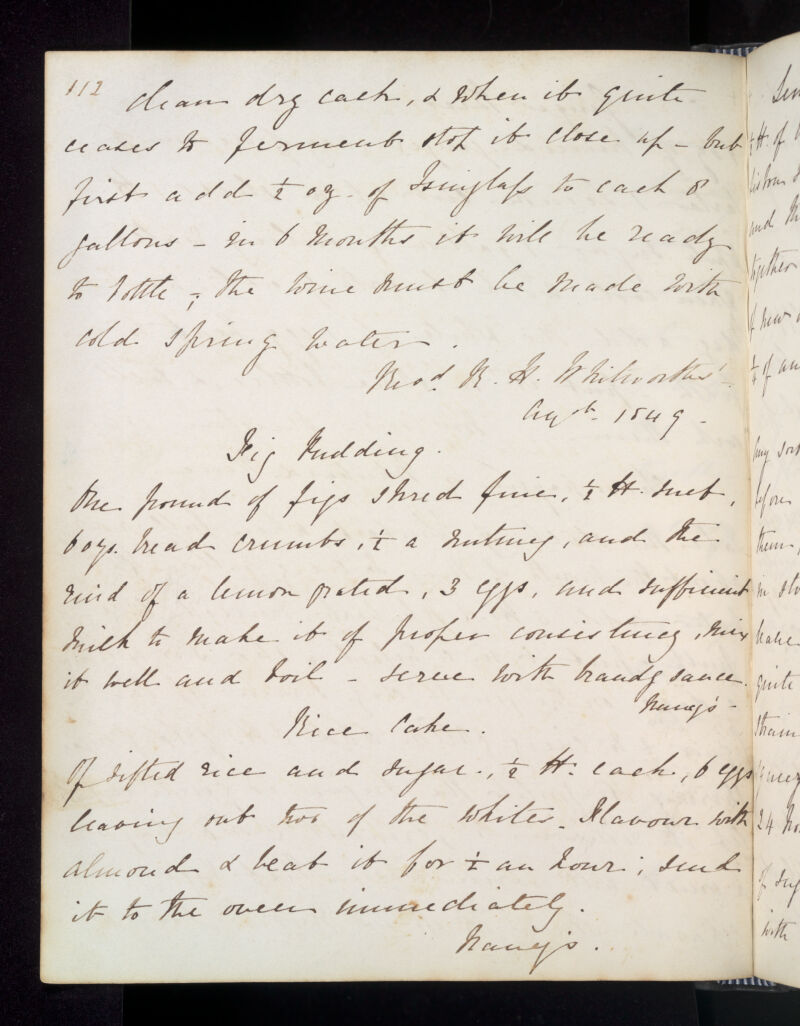 112
clean dry cask, & when it quite
ceases to ferment stop it close up - but
first add ½ oz. of Isinglass to each 8
gallons - in 6 months it will be ready
to bottle; the wine must be made with
cold spring water.
Revd. R. H. Whitworth's -
Augst. 1849 -
Fig Pudding.
One pound of figs shred fine, ½ lb. suet,
6 ozs. bread crumbs, ½ a nutmeg, and the
rind of a lemon grated, 3 eggs, and sufficient
milk to make it of proper consistency, mix
it well and boil - serve with brandy sauce.
Nancy's -
Rice Cake.
Of sifted rice and sugar, ½ lb. each, 6 eggs
leaving out two of the whites. Flavour with
almond & beat it for ½ an hour; send
it to the oven immediately.
Nancy's.
lb. of
and
together
of new
¼ of an
before
them,
quite
strain
24
with